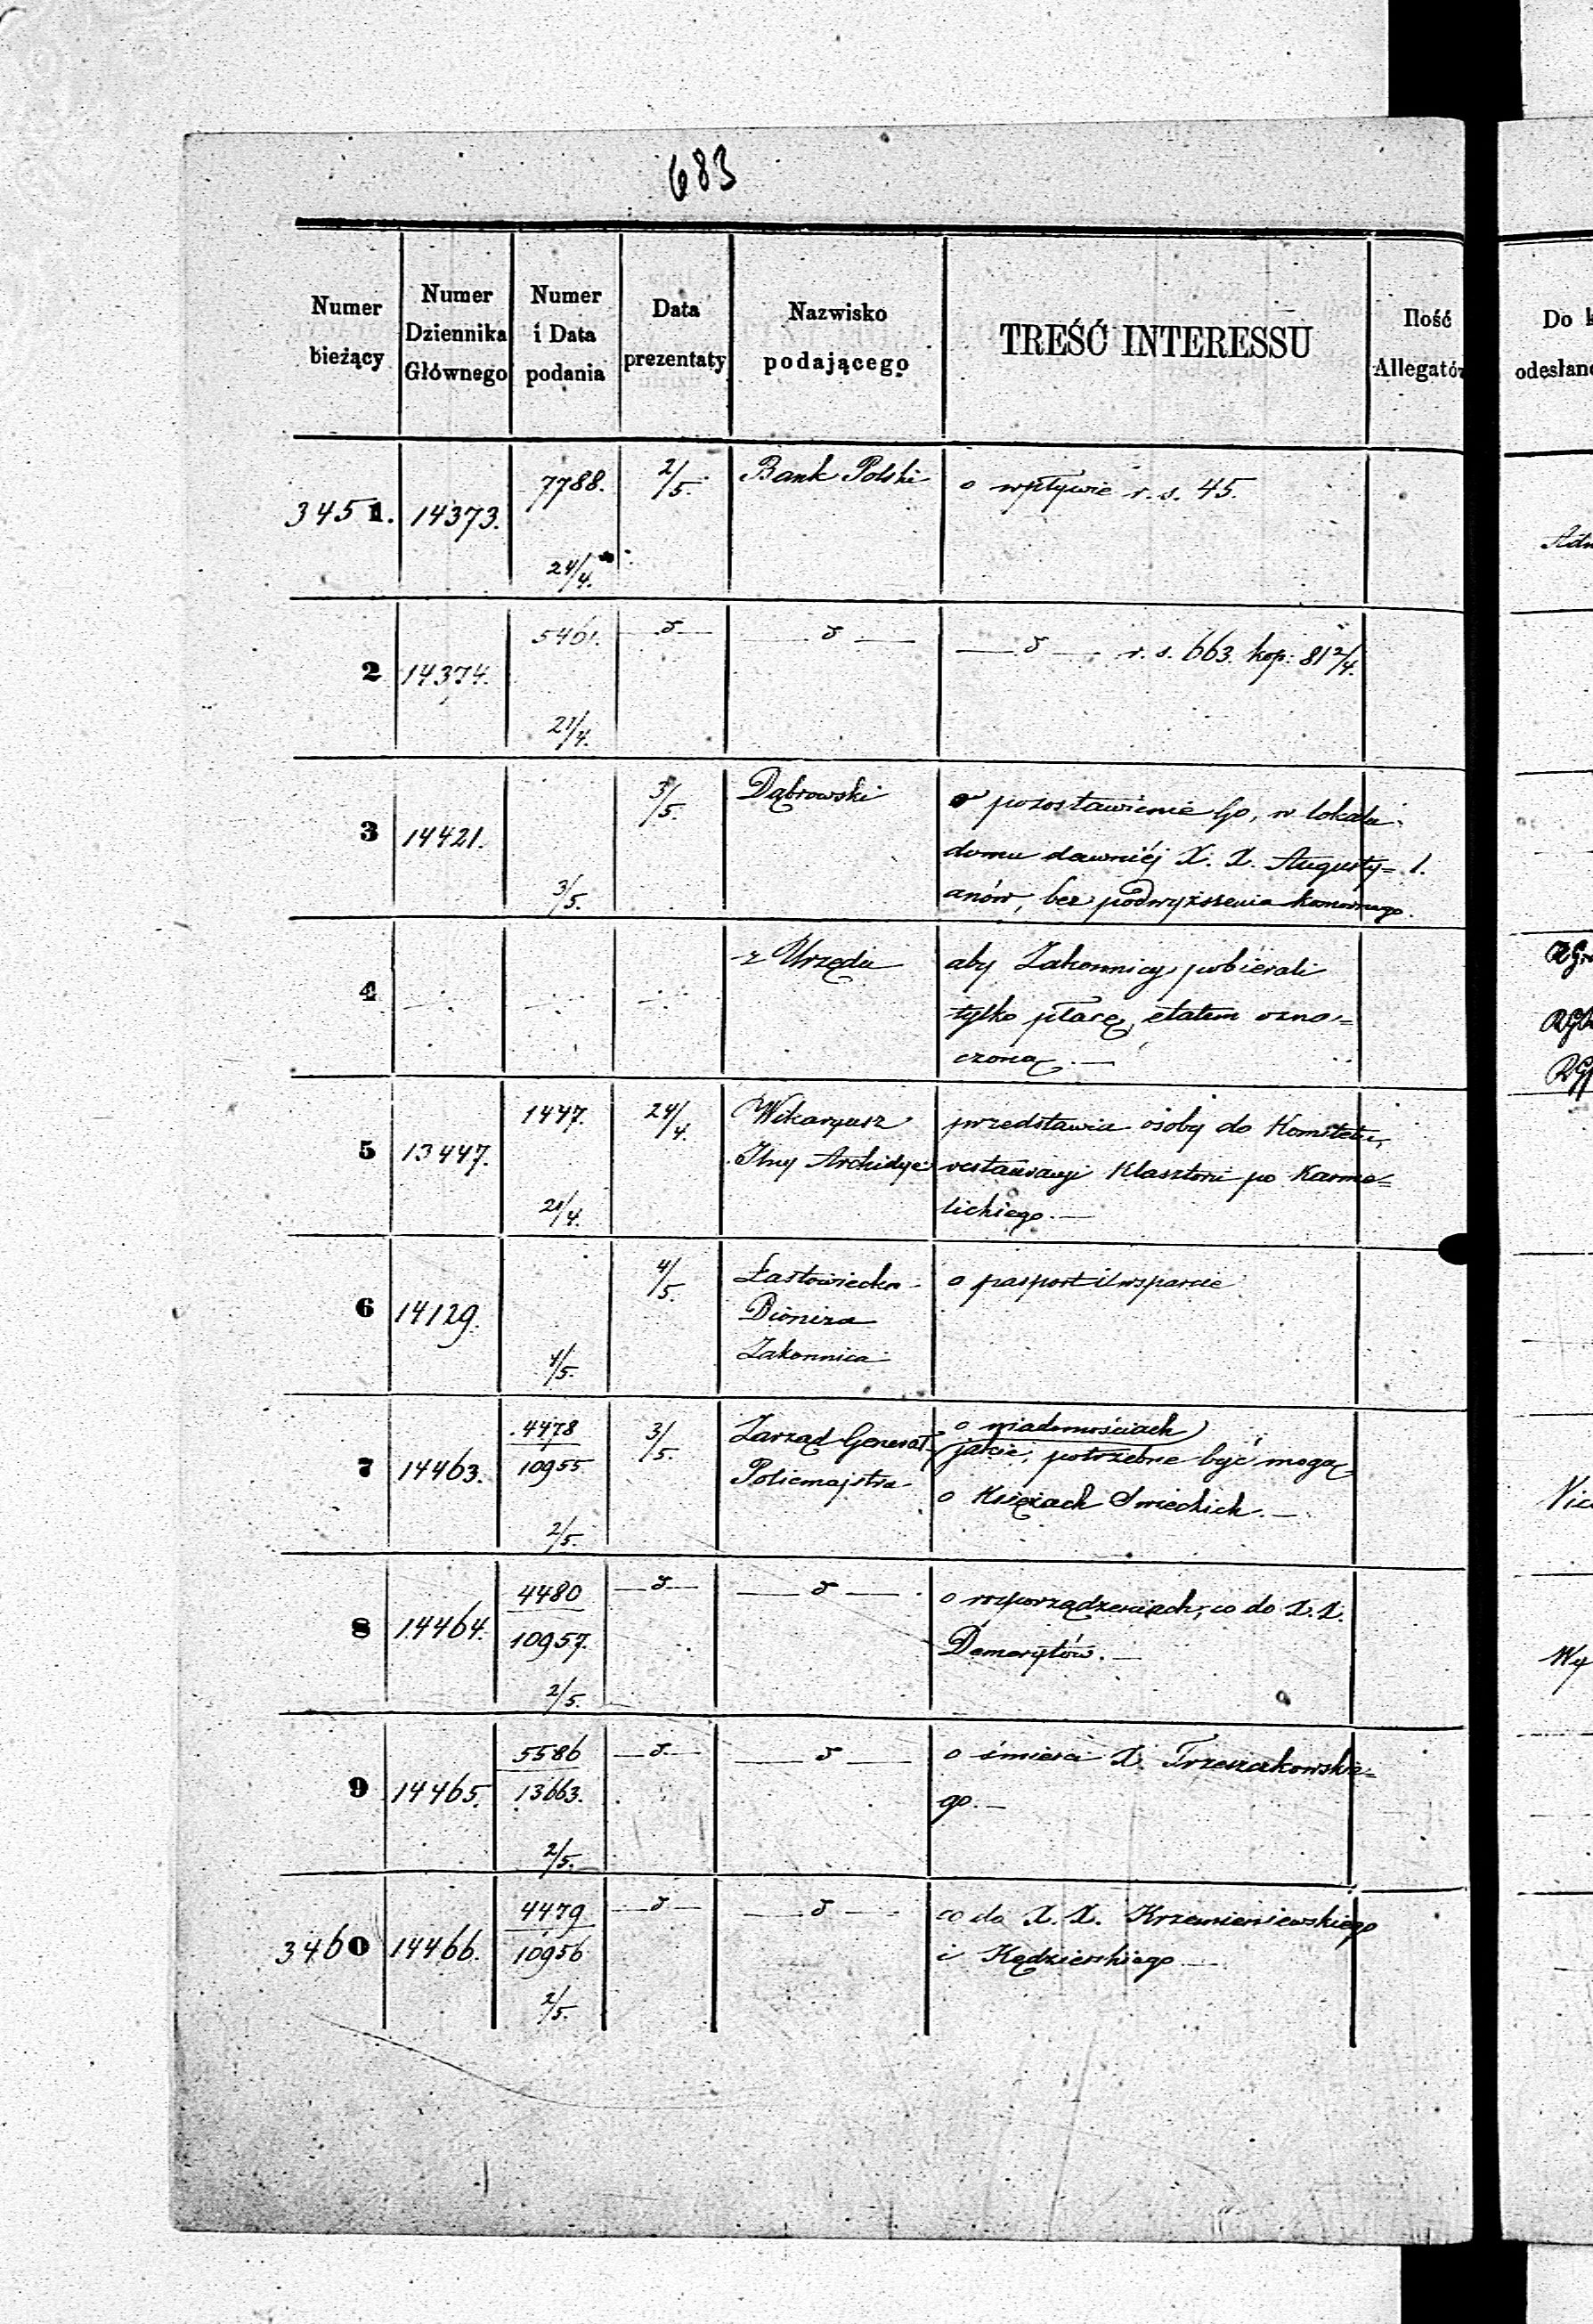 683
Numer bieżący
Numer Dziennika Głównego
Numer i Data podania
Data prezentaty
Nazwisko podającego
TREŚĆ INTERESSU
Ilość Allegatów
Do k
odesłano
3451. 14373. 7788. 24/4. 2/5. Bank Polski o wpływie r. s. 45.
2 14374. 5461. 21/4. —d— —d— —d— r. s. 663. kop: 81 2/4.
3 14421. 3/5. 3/5. Dąbrowski o pozostawienie Go, w lokalu
domu dawniéj X. X. Augusty= 1.
anów, bez podwyższenia komornego.
4 z Urzędu aby Zakonnicy pobierali
tylko płacę, etatem ozna=
czoną. —
5 13447. 1447. 21/4. 24/4. Wikaryusz przedstawia osoby do Komitetu,
Jlny Archidyec restauracyi Klasztoru po Karme=
lickiego. —
6 14129. 4/5. 4/5. Łastowiecka o pasport i wsparcie
Dioniza
Zakonnica
7 14463. 4478 10955 2/5. 3/5. Zarząd Generał o wiadomościach
Policmajstra jakie, potrzebne być mogą
o Księżach Swieckich. —
8 14464. 4480 10957. 2/5. —d— —d— o rozporządzeniach, co do X. X.
Demerytów. —
9 14465. 5586 13663. 2/5. —d— —d— o śmierci X. Trzeszakowskie=
go. —
3460 14466. 4479 10956 2/5. —d— —d— co do X. X. Krzemieniewskiego
i Kędzierskiego —